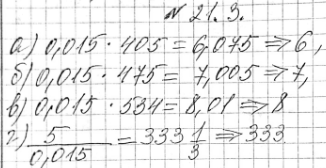 № 21.3.
а) 0,015 · 405 = 6,075 ⇒ 6,
б) 0,015 · 475 = 7,005 ⇒ 7,
в) 0,015 · 534 = 8,01 ⇒ 8
г) 5/0,015 = 333 1/3 ⇒ 333